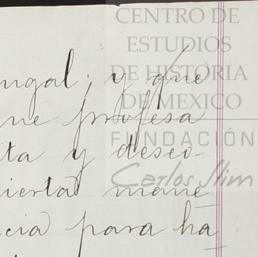 CENTRO DE
ESTUDIOS
DE HISTORIA
DE MEXICO
FUNDACIÓN
Carlos Slim
ngal; y que
ne profesa
ta y desco-
ierta mane
cia para ha